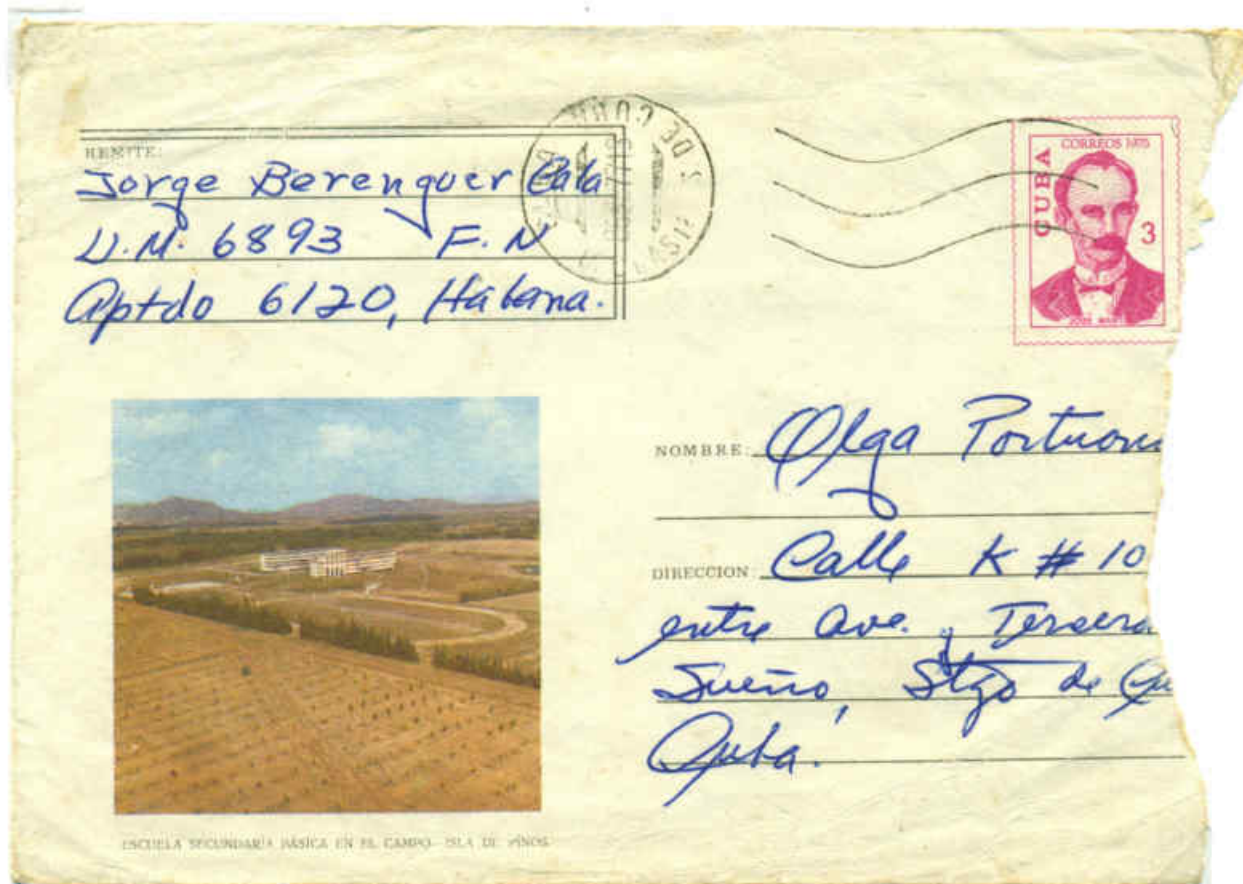 REMITE:
Jorge Berenguer Cala
U.M. 6893 F.N
Aptdo 6120, Habana.
S DE CUBA
CORREOS 1975
CUBA
3
JOSE MARTI
NOMBRE: Olga Portuon
DIRECCION: Calle K # 10
entre Ave. y Tercera
Sueño, Stgo de Cu
Cuba.
ESCUELA SECUNDARIA BÁSICA EN EL CAMPO. ISLA DE PINOS